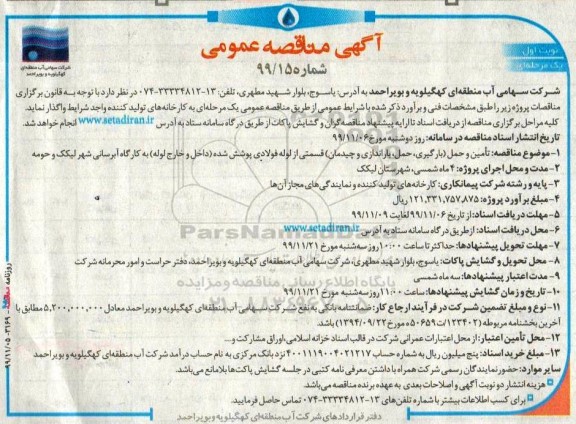 آگهی مناقصه عمومی
شماره ۹۹/۱۵
نوبت اول
یک مرحله‌ای
شرکت سهامی آب منطقه‌ای
کهگیلویه و بویراحمد
شرکت سهامی آب منطقه‌ای کهگیلویه و بویراحمد به آدرس: یاسوج، بلوار شهید مطهری، تلفن: ۱۳-۳۳۳۳۴۸۱۲-۰۷۴ در نظر دارد با توجه به قانون برگزاری
مناقصات پروژه زیر را طبق مشخصات فنی و برآورد ذکر شده با شرایط عمومی از طریق مناقصه عمومی یک مرحله‌ای به کارخانه‌های تولید کننده واجد شرایط واگذار نماید.
کلیه مراحل برگزاری مناقصه از دریافت اسناد تا ارایه پیشنهاد مناقصه‌گران و گشایش پاکات از طریق درگاه سامانه ستاد به آدرس www.setadiran.ir انجام خواهد شد.
تاریخ انتشار اسناد مناقصه در سامانه: روز دوشنبه مورخ ۹۹/۱۱/۰۶
۱-موضوع مناقصه: تأمین و حمل (بارگیری، حمل، باراندازی و چیدمان) قسمتی از لوله فولادی پوشش شده (داخل و خارج لوله) به کارگاه آبرسانی شهر لیکک و حومه
۲-مدت و محل اجرای پروژه: ۴ ماه شمسی، شهرستان لیکک
۳- پایه و رشته شرکت پیمانکاری: کارخانه‌های تولید کننده و نمایندگی‌های مجاز آن‌ها
۴-مبلغ برآورد پروژه: ۱۲۱,۳۳۱,۷۵۷,۸۷۵ ریال
۵-مهلت دریافت اسناد: از تاریخ ۹۹/۱۱/۰۶ لغایت ۹۹/۱۱/۰۹
۶-محل دریافت اسناد: از طریق درگاه سامانه ستاد به آدرس www.setadiran.ir
۷-مهلت تحویل پیشنهادها: حداکثر تا ساعت ۱۰:۰۰ روز سه‌شنبه مورخ ۹۹/۱۱/۲۱
۸-محل تحویل و گشایش پاکات: یاسوج، بلوار شهید مطهری، شرکت سهامی آب منطقه‌ای کهگیلویه و بویراحمد، دفتر حراست و امور محرمانه شرکت
۹-مدت اعتبار پیشنهادها: سه ماه شمسی
۱۰-تاریخ و زمان گشایش پیشنهادها: ساعت ۱۱:۰۰ روز سه‌شنبه مورخ ۹۹/۱۱/۲۱
۱۱-نوع و مبلغ تضمین شرکت در فرآیند ارجاع کار: ضمانتنامه بانکی به نفع شرکت سهامی آب منطقه‌ای کهگیلویه و بویراحمد معادل ۵,۲۰۰,۰۰۰,۰۰۰ مطابق با
آخرین بخشنامه مربوطه (۱۲۳۴۰۲/ت۵۰۶۵۹ه مورخ ۱۳۹۴/۰۹/۲۲) باشد.
۱۲-محل تأمین اعتبار: از محل اعتبارات عمرانی شرکت در قالب اسناد خزانه اسلامی، اوراق مشارکت و...
۱۳-مبلغ خرید اسناد: پنج میلیون ریال به شماره حساب ۴۰۰۱۱۱۹۰۰۴۰۲۱۲۱۷ نزد بانک مرکزی به نام حساب درآمد شرکت آب منطقه‌ای کهگیلویه و بویراحمد
سایر موارد: حضور نمایندگان رسمی شرکت همراه با داشتن معرفی نامه کتبی در جلسه گشایش پاکت‌ها بلامانع می‌باشد.
هزینه انتشار دو نوبت آگهی و اصلاحات بعدی به عهده برنده مناقصه می‌باشد.
برای کسب اطلاعات بیشتر با شماره تلفن‌های ۱۳-۳۳۳۳۴۸۱۲-۰۷۴ تماس حاصل فرمایید.
دفتر قراردادهای شرکت آب منطقه‌ای کهگیلویه و بویراحمد
ParsNamadData
پایگاه اطلاع رسانی مناقصه و مزایده
۰۲۱-۸۸۳۴۹۶۷۰